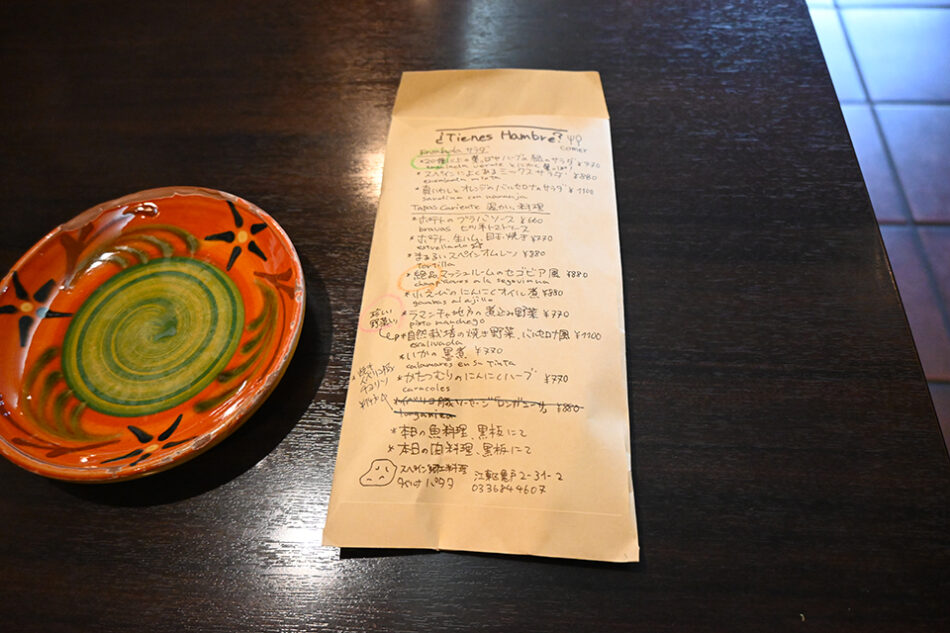 ¿Tienes Hambre?
comer
ensalada サラダ
ハーブの 緑のサラダ ¥770
ensalada verde
*スペインによくあるミックスサラダ ¥880
ensalada mixta
*真いわしとオレンジのバルセロナサラダ ¥1100
sardina con naranja
Tapas Caliente 温かい料理
*ポテトのブラバソース ¥660
bravas ピリ辛トマトソース
*ポテト、生ハム、目玉焼き ¥770
estrellado
*まるいスペインオムレツ ¥880
tortilla
*絶品マッシュルームのセゴビア風 ¥880
champiñones a la segoviana
*小えびのにんにくオイル煮 ¥880
gambas al ajillo
珍しい
野菜入り
*ラマンチャ地方の煮込み野菜 ¥770
pisto manchego
*自然栽培の焼き野菜、バルセロナ風 ¥1100
escalivada
*いかの墨煮 ¥770
calamares en su tinta
*かたつむりのにんにくハーブ ¥770
caracoles
*イベリコ豚ソーセージ"ロンガニーサ" ¥880
longaniza
*本日の魚料理、黒板にて
*本日の肉料理、黒板にて
スペイン郷土料理
江東区亀戸2-31-2
0336844607